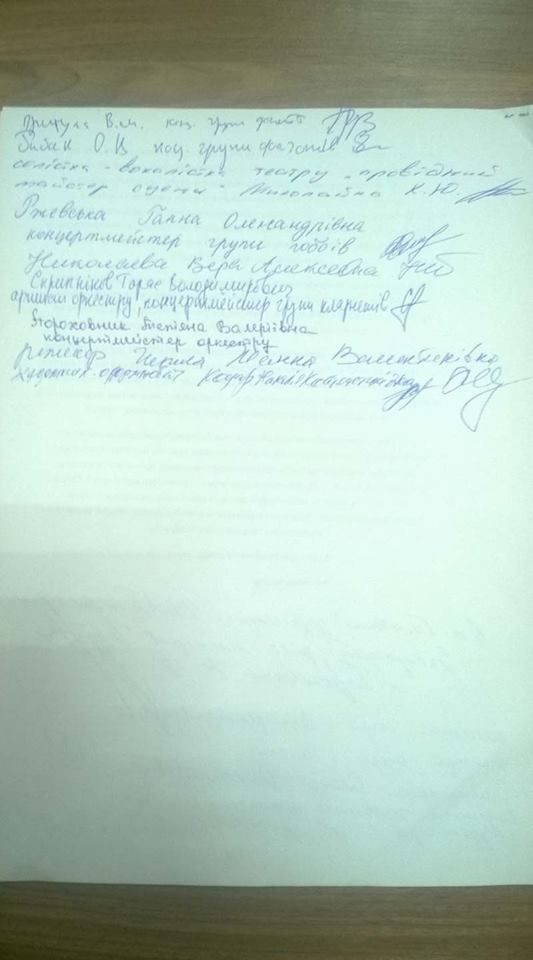 В.М. конц. групи
О.В. конц. групи фаготів
солістка - вокалістка театру, провідний
майстер сцени Миколайчук К.Ю.
Ржевська Ганна Олександрівна
концертмейстер групи гобоїв
Николаева Вера Алексеевна
Скрипніков Тарас Володимирович
артист оркестру, концертмейстер групи кларнетів
Сторожовник Тетяна Валеріївна
концертмейстер оркестру
режисер Жанна Валентинівна
художник